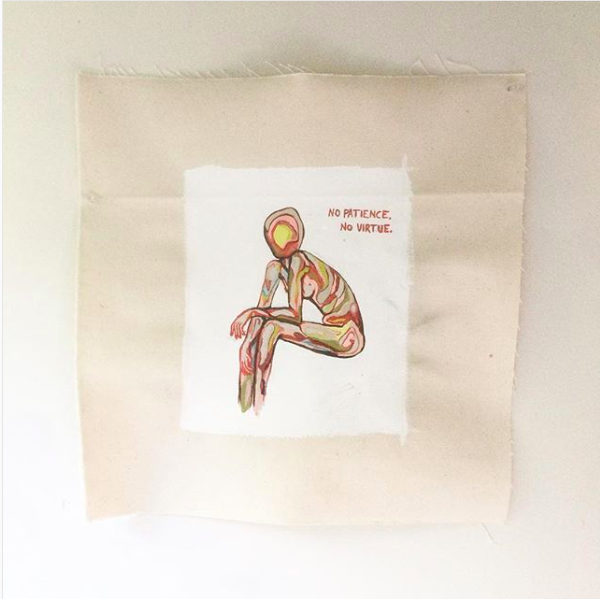 NO PATIENCE.
NO VIRTUE.